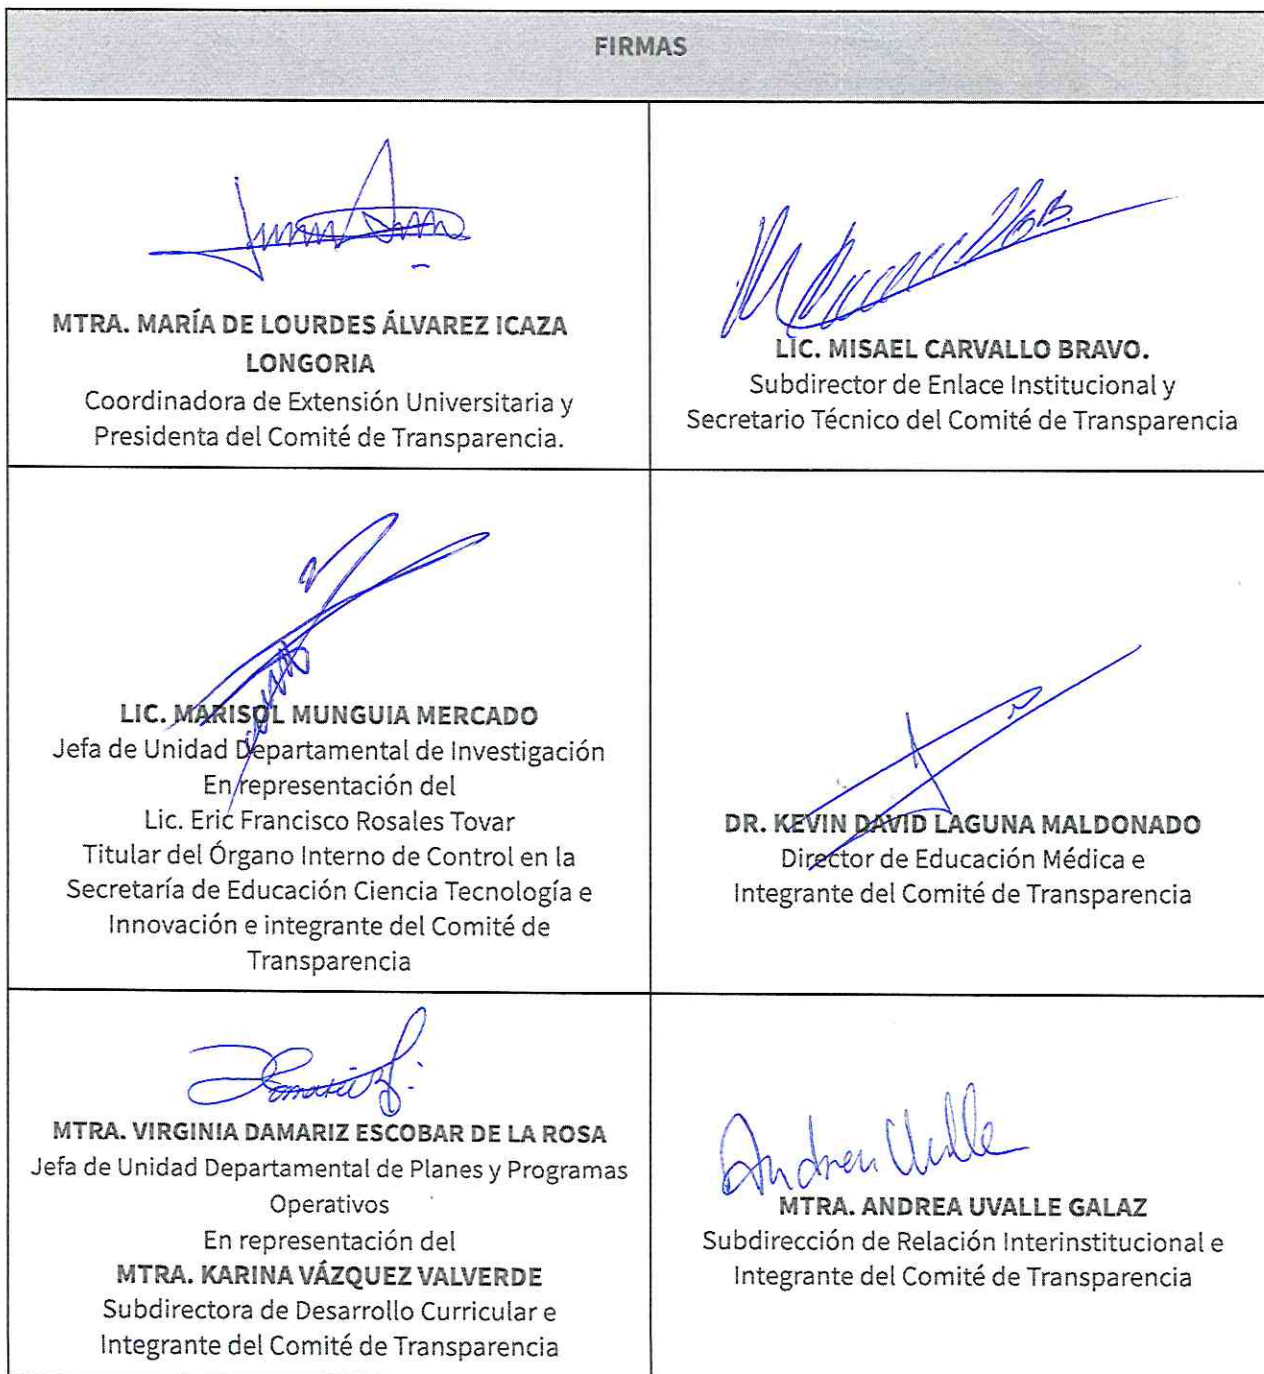 FIRMAS
MTRA. MARÍA DE LOURDES ÁLVAREZ ICAZA
LONGORIA
Coordinadora de Extensión Universitaria y
Presidenta del Comité de Transparencia.
LIC. MISAEL CARVALLO BRAVO.
Subdirector de Enlace Institucional y
Secretario Técnico del Comité de Transparencia
LIC. MARISOL MUNGUIA MERCADO
Jefa de Unidad Departamental de Investigación
En representación del
Lic. Eric Francisco Rosales Tovar
Titular del Órgano Interno de Control en la
Secretaría de Educación Ciencia Tecnología e
Innovación e integrante del Comité de
Transparencia
DR. KEVIN DAVID LAGUNA MALDONADO
Director de Educación Médica e
Integrante del Comité de Transparencia
MTRA. VIRGINIA DAMARIZ ESCOBAR DE LA ROSA
Jefa de Unidad Departamental de Planes y Programas
Operativos
En representación del
MTRA. KARINA VÁZQUEZ VALVERDE
Subdirectora de Desarrollo Curricular e
Integrante del Comité de Transparencia
Andrea Uvalle
MTRA. ANDREA UVALLE GALAZ
Subdirección de Relación Interinstitucional e
Integrante del Comité de Transparencia